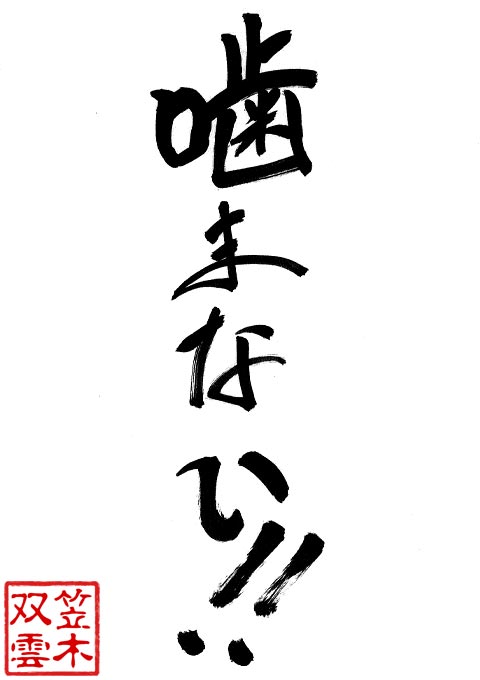 噛まない!!
笠木
双雲